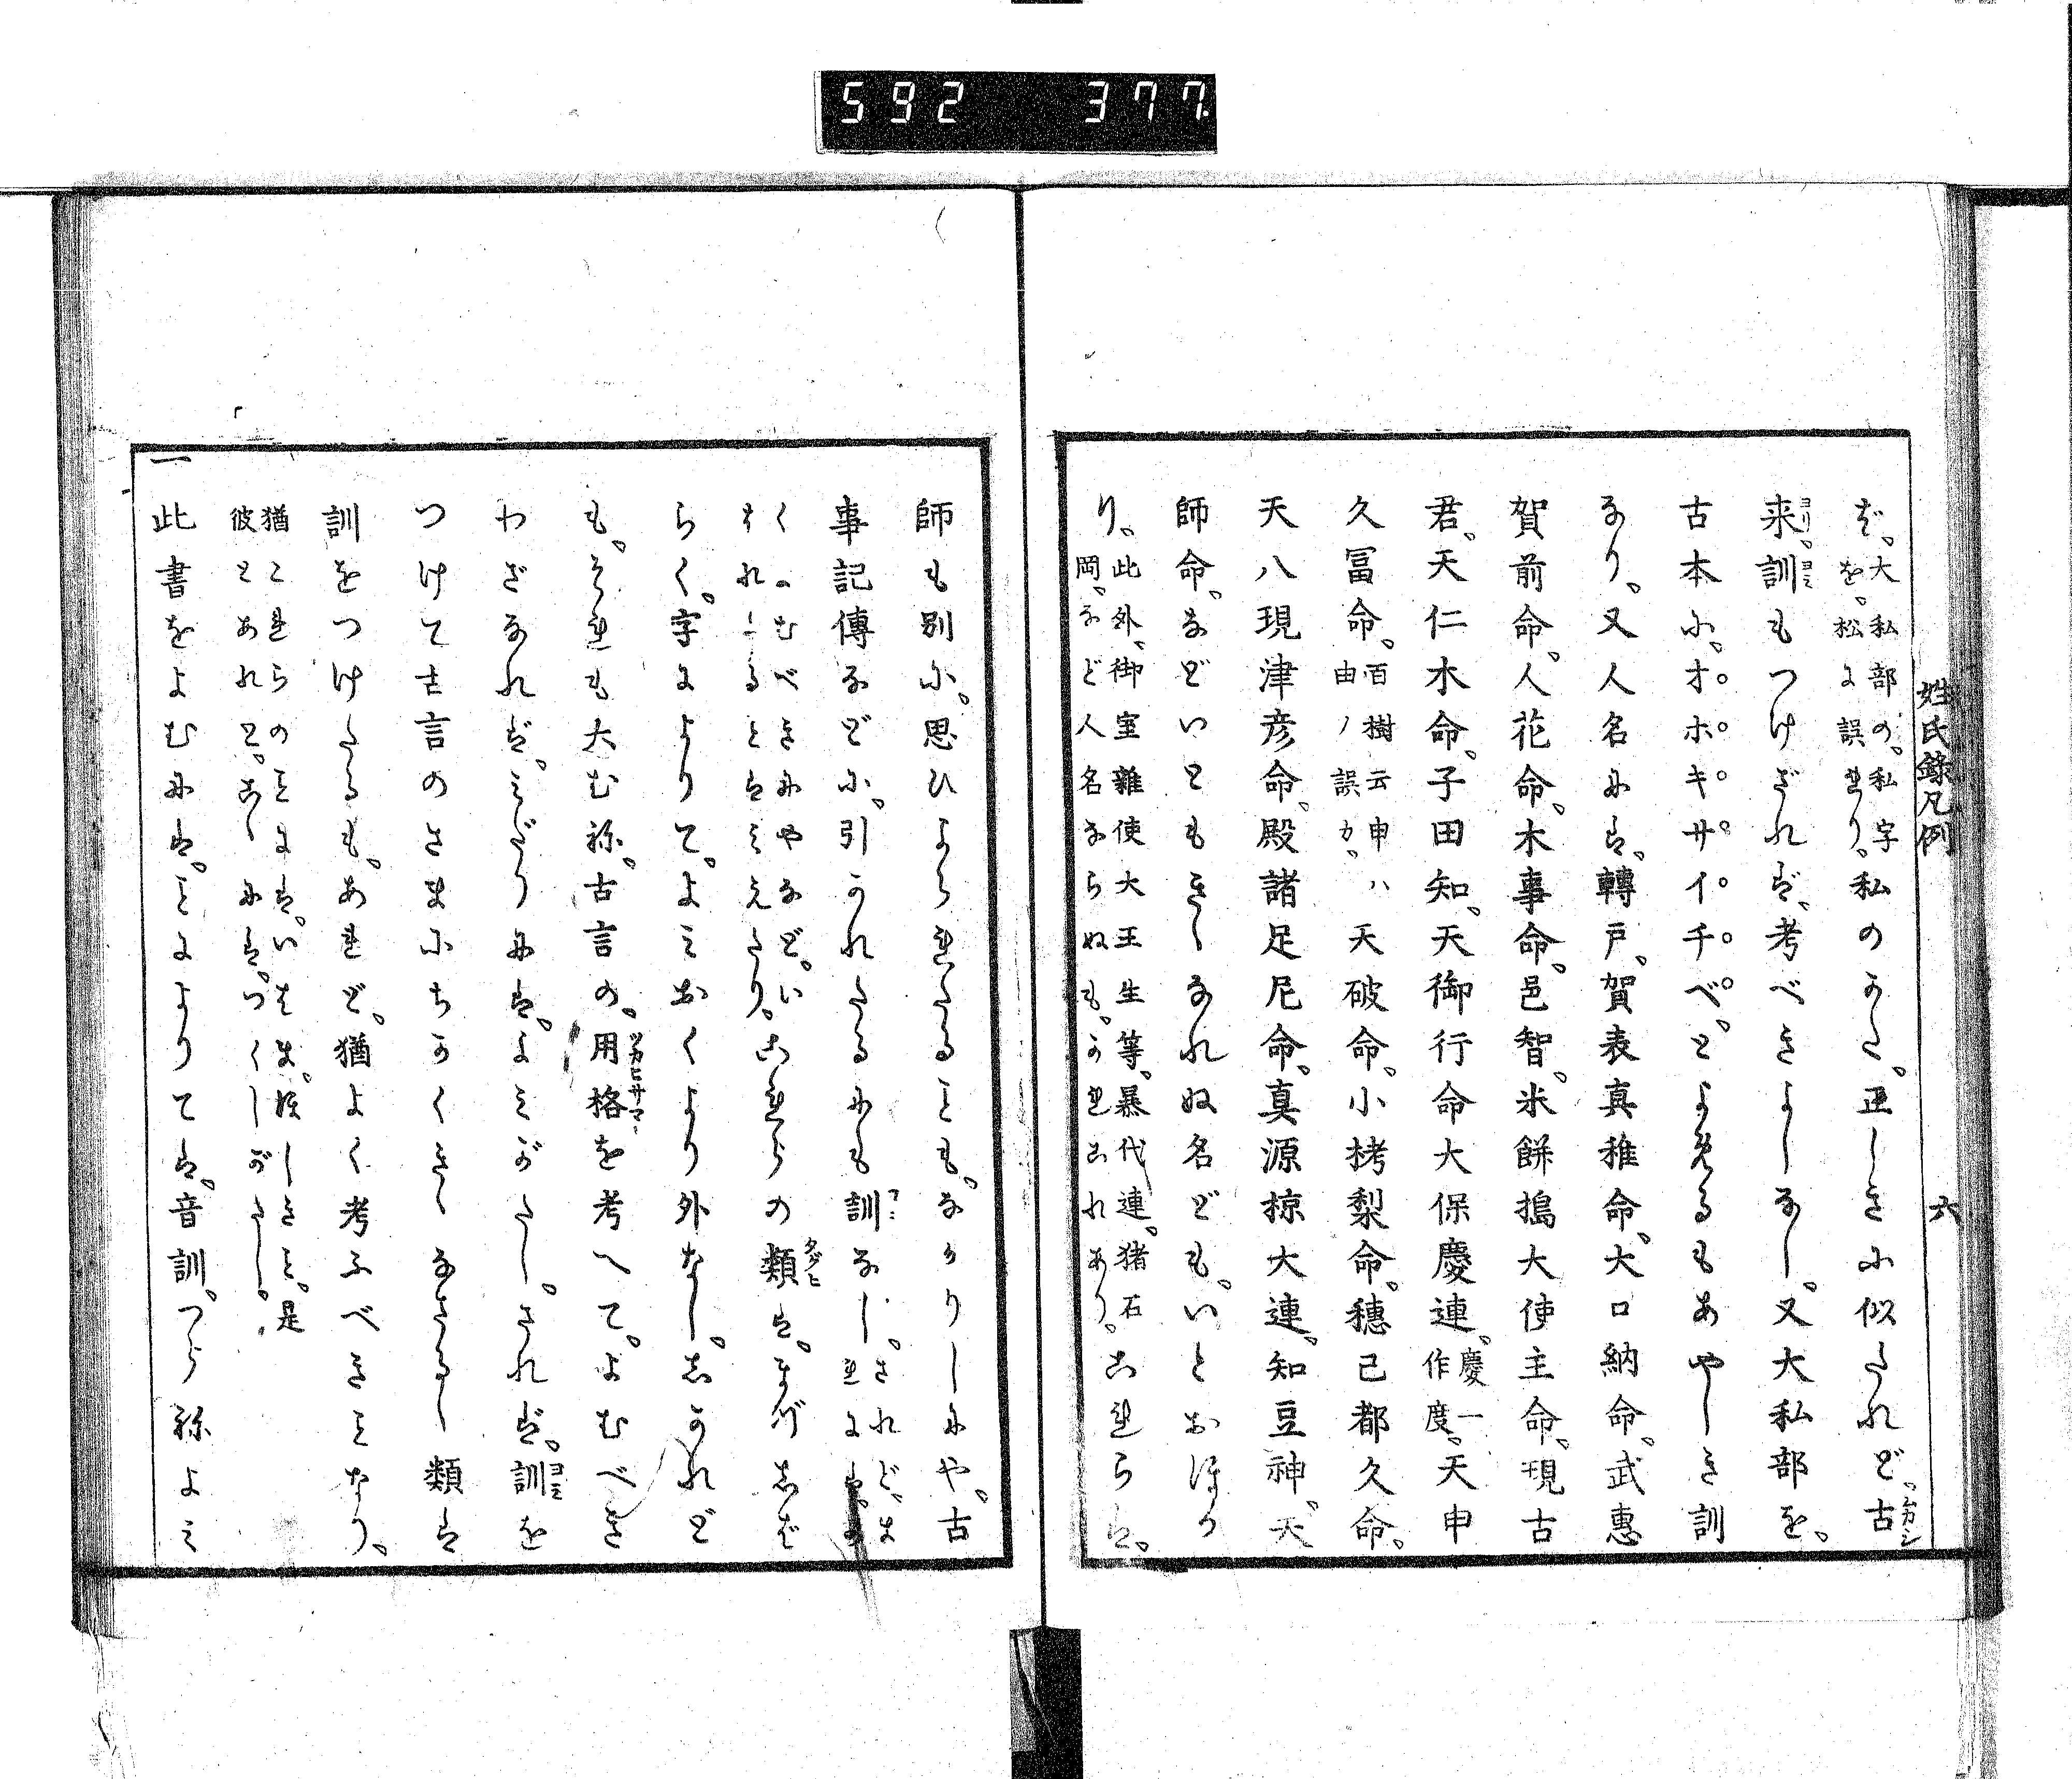 592 377
姓氏錄凡例 六
ば、大私部の、私字を、松に誤れり、私のかた、正しきに似たれど、古ムカシ
来ヨリ、訓ヨミもつけざれば、考べきよしなし、又大私部を、
古本に、オホキサイチベ、とよめるもあやしき訓
なり、又人名には、轉戸、賀表真稚命、大口納命、武惠
賀前命、人花命、木事命、邑智、米餅搗大使主命、現古
君、天仁木命、子田知、天御行命大保慶連、慶一作度、天申
久冨命、百樹云申ハ由ノ誤カ、天破命、小栲梨命、穗己都久命、
天八現津彦命、殿諸足尼命、真源掠大連、知豆神、天
師命、などいともきゝなれぬ名ども、いとおほか
り、此外、御室雜使大王生等、暴代連、猪石岡、など人名ならぬも、かれこれあり、これらは、
師も別に、思ひよられたることも、なかりしにや、古
事記傳などに、引かれたるにも訓フミなし、されど、ま
くかむべきにやなど、いはれたるとはみえたり、これらの類タグヒは、まげしば
らく、字によりて、よみおくより外なし、しかれど
も、それも大む称、古言の、用格ツカヒサマを考へて、よむべき
わざなれば、みだりには、よみがたし、されば、訓ヨミを
つけて古言のさまにちかくきゝなさるゝ類は
訓をつけたるも、あれど、猶よく考ふべきことなり、
猶これらのことは、いはまほしきこと、是彼とあれど、こゝには、つくしがたし、
一此書をよむには、ことによりては、音訓、つら称よみ